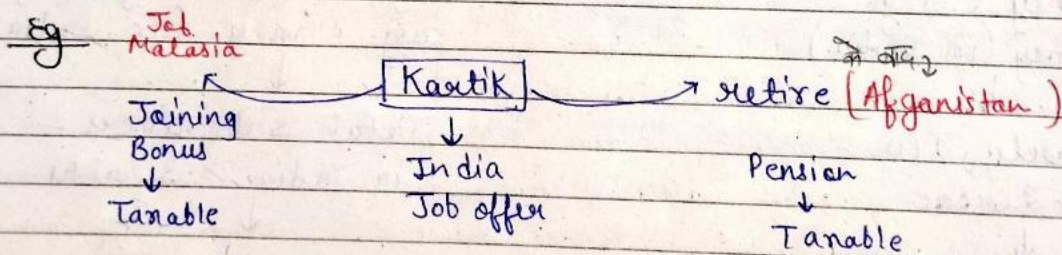 Eg
Job
Malasia
Kartik
के बाद
retire (Afganistan)
Joining
Bonus
↓
Taxable
↓
India
Job offer
Pension
↓
Taxable